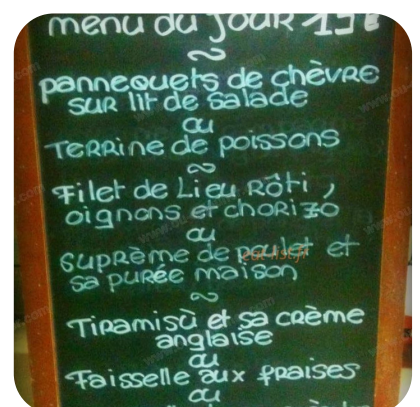 menu du jour 19€
~
pannequets de chèvre
sur lit de salade
ou
Terrine de poissons
~
Filet de Lieu Rôti,
oignons et chorizo
ou
suprème de poulet et
sa purée maison
~
Tiramisù et sa crème
anglaise
ou
Faisselle aux fraises
ou